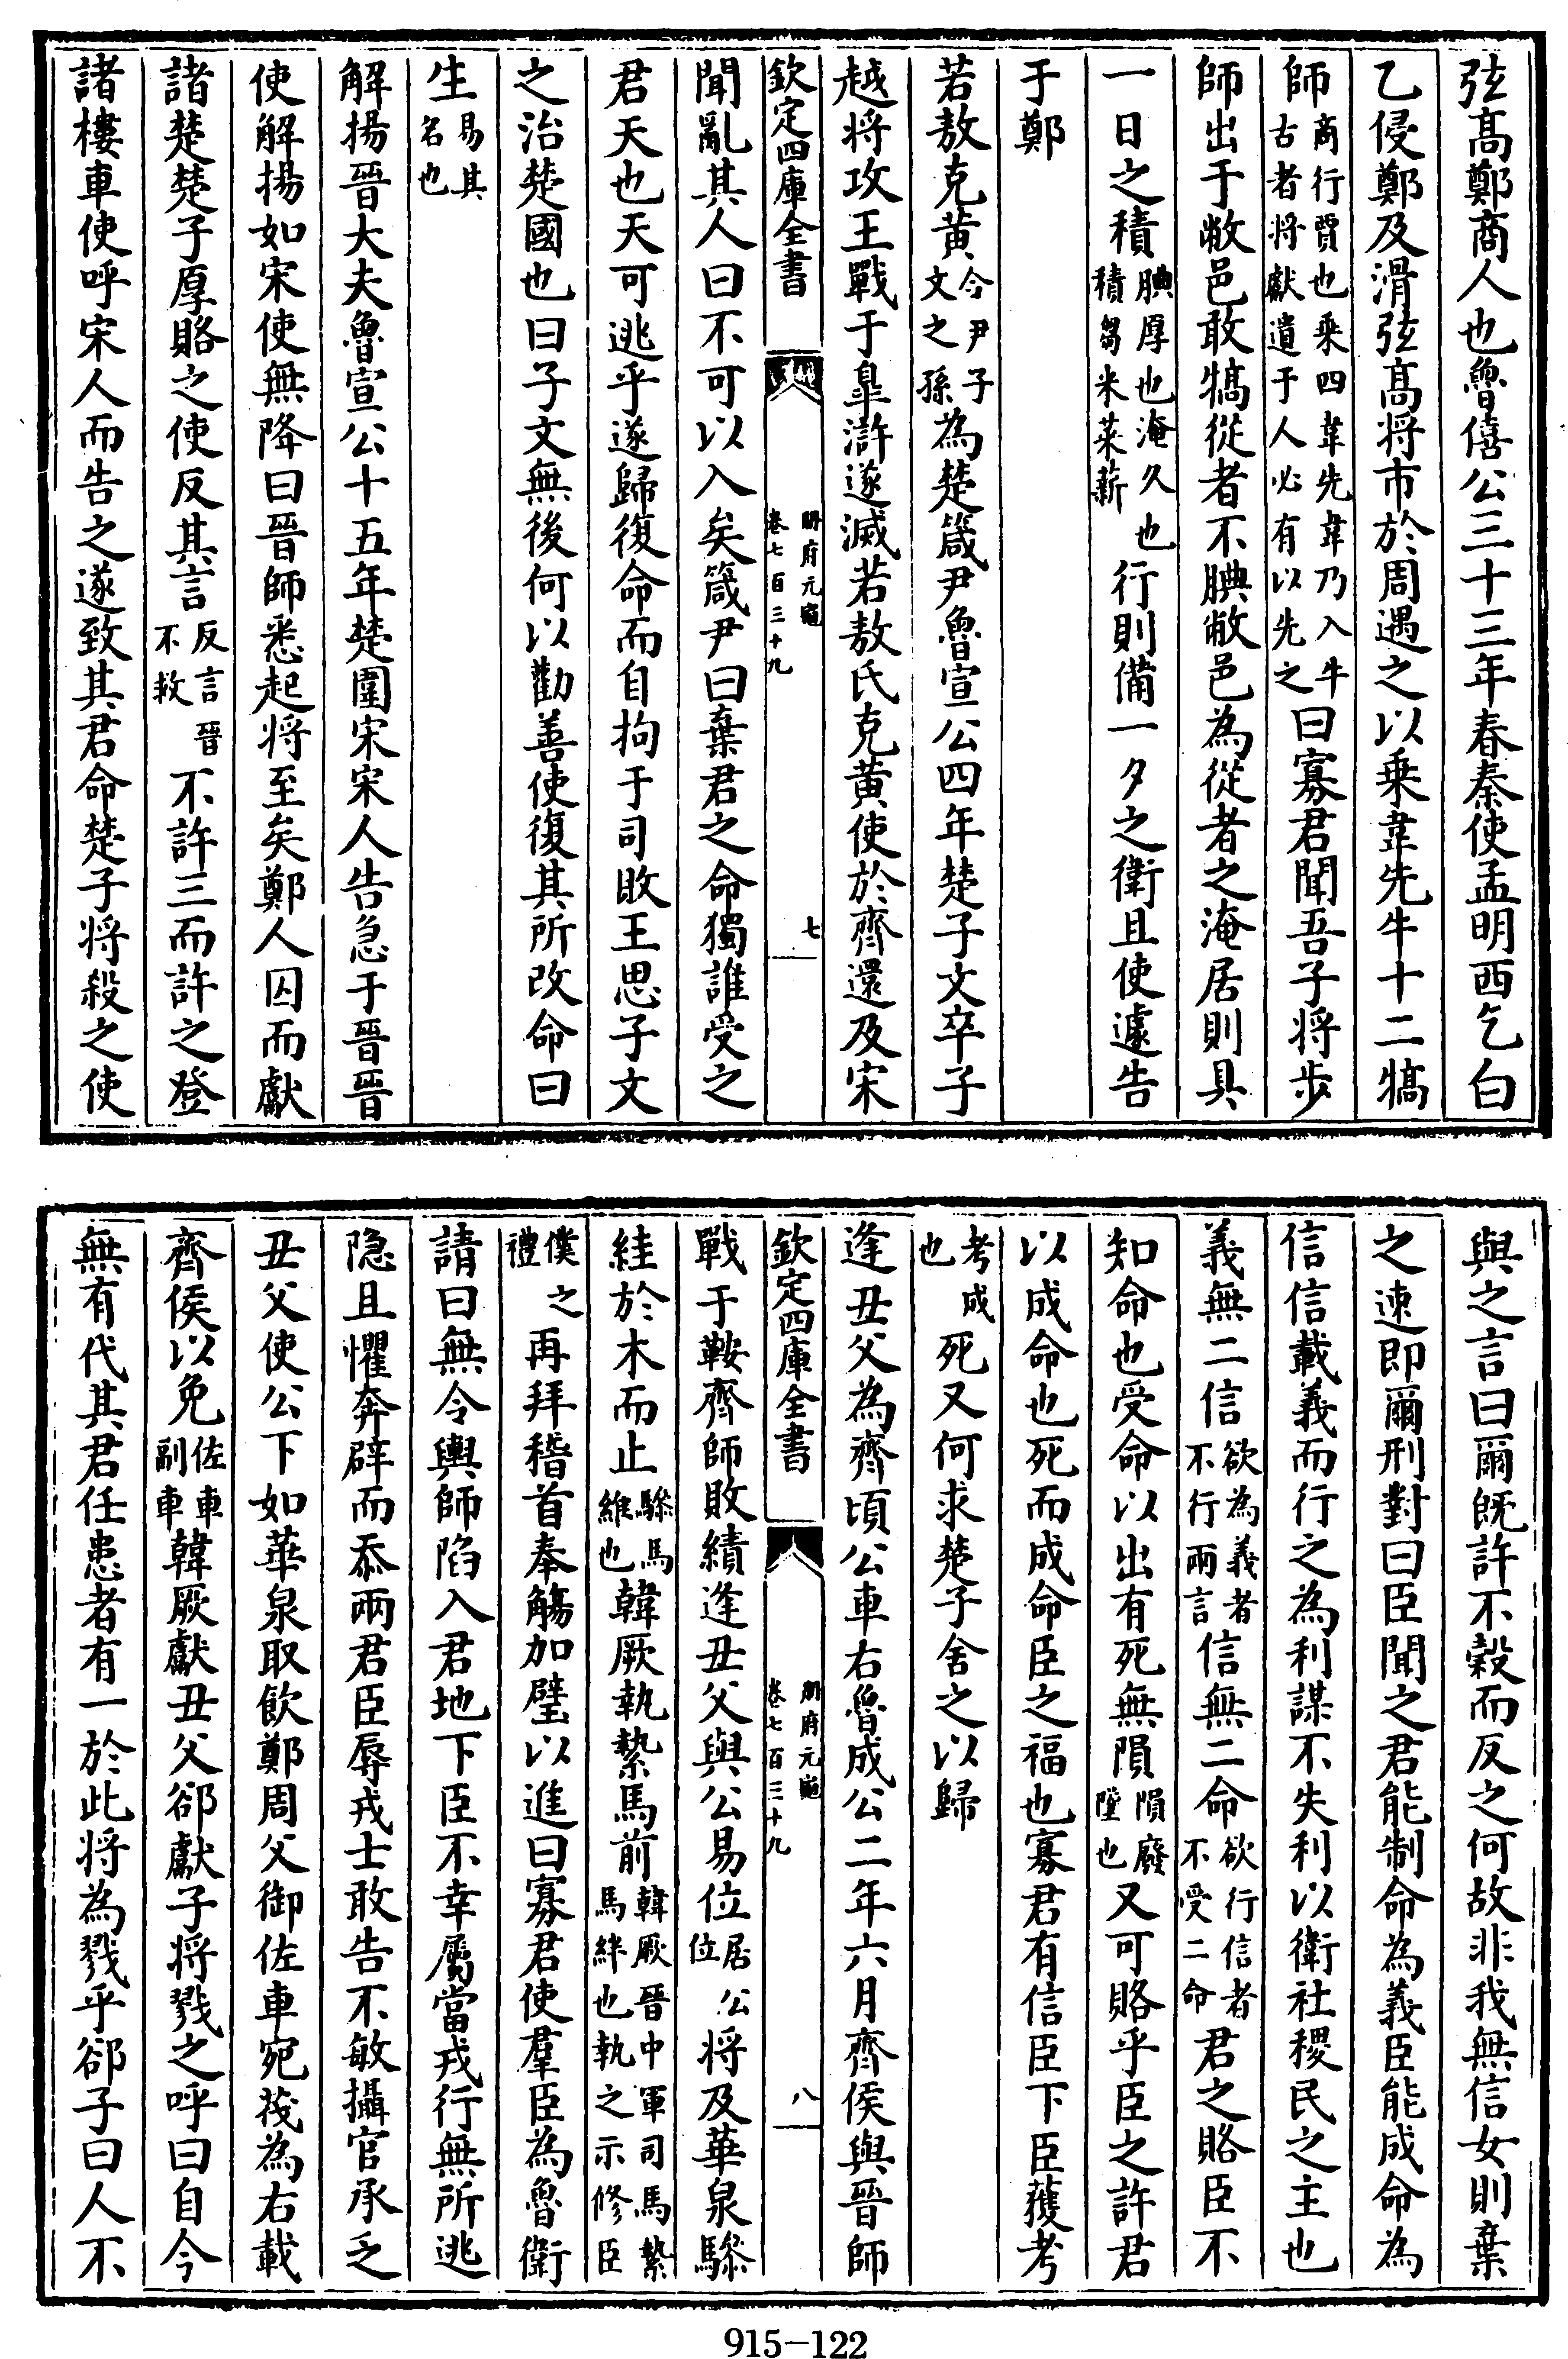 弦髙鄭商人也魯僖公三十三年春秦使孟明西乞白
乙侵鄭及滑弦髙将市於周遇之以乗韋先牛十二犒
師商行賈也乗四韋先韋乃入牛古者将獻遺于人必有以先之曰寡君聞吾子将步
師出于敝邑敢犒從者不腆敝邑為從者之淹居則具
一日之積腆厚也淹久也積芻米菜薪行則備一夕之衛且使遽告
于鄭
若敖克黄令尹子文之孫為楚箴尹魯宣公四年楚子文卒子
越将攻王戰于臯滸遂滅若敖氏克黄使於齊還及宋
欽定四庫全書
冊府元龜
卷七百三十九
七
聞亂其人曰不可以入矣箴尹曰棄君之命獨誰受之
君天也天可逃乎遂歸復命而自拘于司敗王思子文
之治楚國也曰子文無後何以勸善使復其所改命曰
生易其名也
解揚晉大夫魯宣公十五年楚圍宋宋人告急于晉晉
使解揚如宋使無降曰晉師悉起将至矣鄭人囚而獻
諸楚楚子厚賂之使反其言反言晉不救不許三而許之登
諸樓車使呼宋人而告之遂致其君命楚子将殺之使
與之言曰爾既許不榖而反之何故非我無信女則棄
之速即爾刑對曰臣聞之君能制命為義臣能成命為
信信載義而行之為利謀不失利以衛社稷民之主也
義無二信欲為義者不行兩言信無二命欲行信者不受二命君之賂臣不
知命也受命以出有死無隕隕廢墜也又可賂乎臣之許君
以成命也死而成命臣之福也寡君有信臣下臣獲考
考成也死又何求楚子舍之以歸
逢丑父為齊頃公車右魯成公二年六月齊侯與晉師
欽定四庫全書
冊府元龜
卷七百三十九
八
戰于鞍齊師敗績逢丑父與公易位居公位将及華泉驂
絓於木而止驂馬維也韓厥執縶馬前韓厥晉中軍司馬縶馬絆也執之示修臣
僕之禮再拜稽首奉觴加璧以進曰寡君使羣臣為魯衛
請曰無令輿師陷入君地下臣不幸屬當戎行無所逃
隐且懼奔辟而忝兩君臣辱戎士敢告不敏攝官承乏
丑父使公下如華泉取飲鄭周父御佐車宛茷為右載
齊侯以免佐車副車韓厥獻丑父郤獻子将戮之呼曰自今
無有代其君任患者有一於此将為戮乎郤子曰人不
915-122